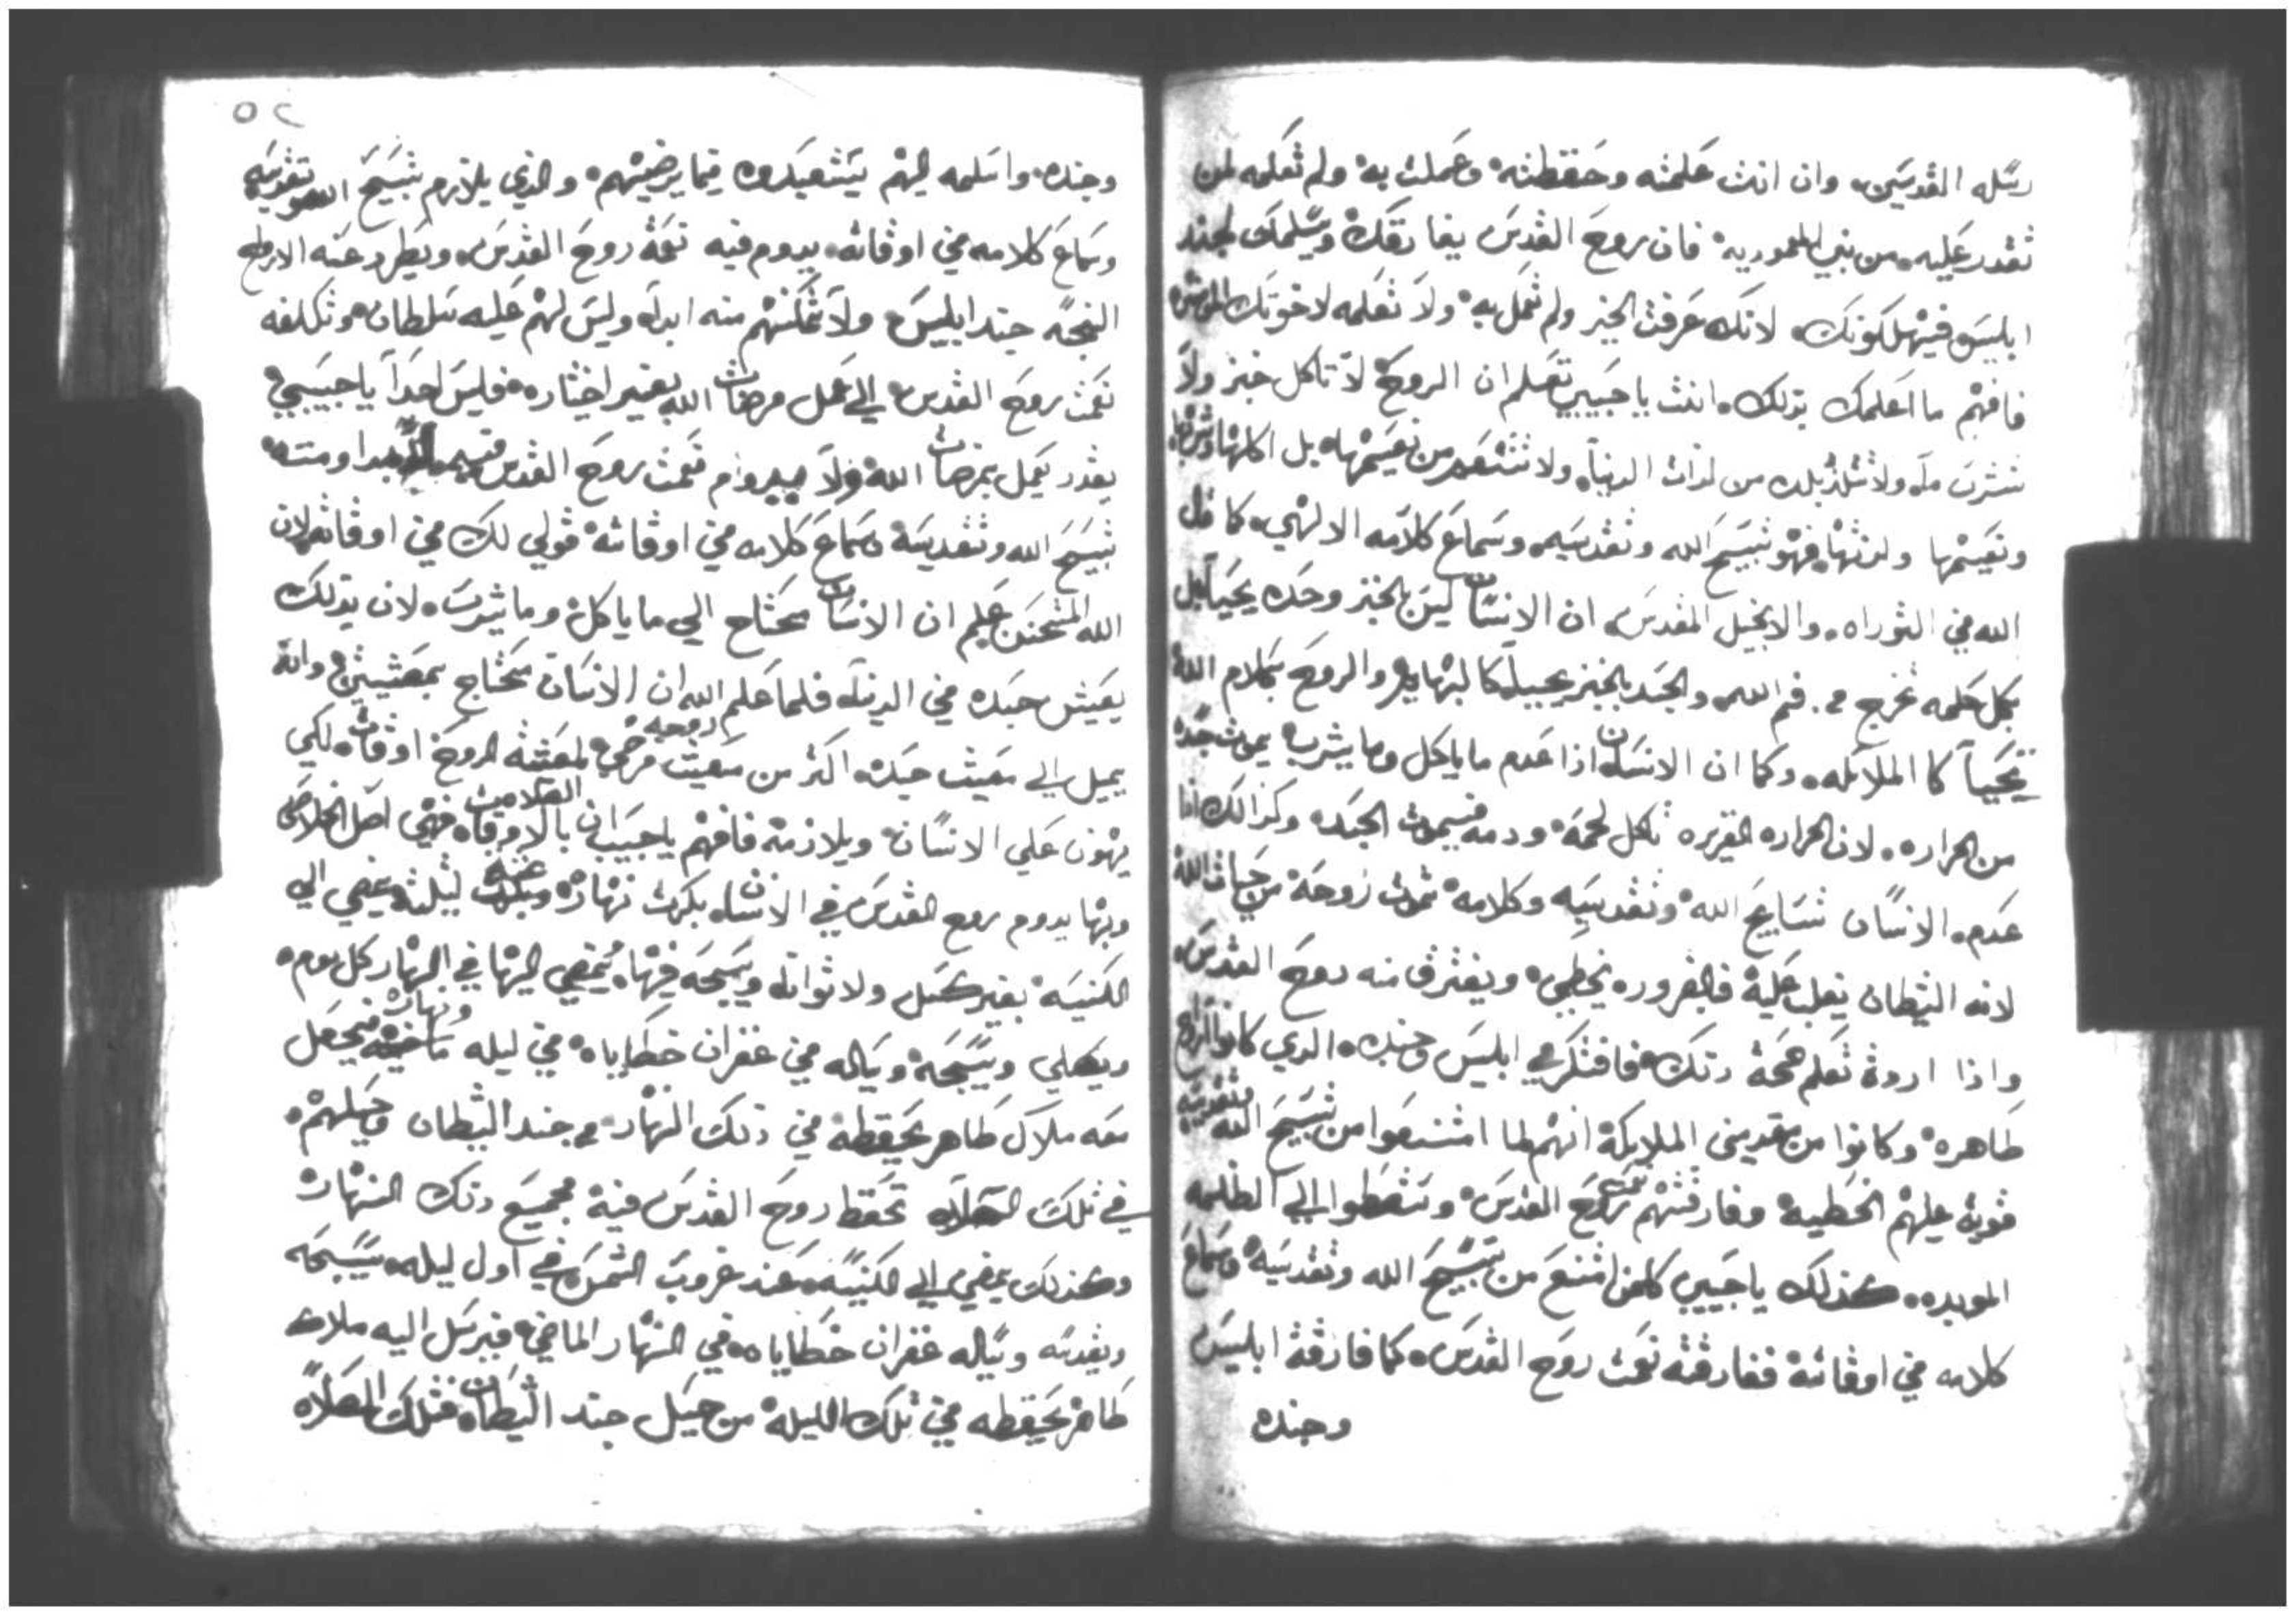 رسله القديسين، وان انت علمته وحفظته وعملت به ولم تعلمه لمن
تقدر عليه من بني المعموديه فان روح القدس يفارقك ويسلمك لجند
ابليس فيهلكونك، لانك عرفت الخير ولم تعمل به ولا تعلمه لاخوتك
فافهم ما اعلمك بذلك، انت يا حبيبي تعلم ان الروح لا تاكل خبز ولا
تشرب ماء ولا تتلذذ بلده من لذات الدنيا، ولا تتنعم من نعيمها، بل اكلها وشربها
ونعيمها ولذتها، فهو تسبيح الله وتقديسه، وسماع كلامه الالهي، كما قال
الله في التوراه، والانجيل المقدس، ان الانسان ليس بالخبز وحده يحيا بل
بكل كلمه تخرج من فم الله، والجسد بالخبز يحيا كالبهايم والروح بكلام الله
تحيا كا الملائكه، وكما ان الانسان اذا عدم ما ياكل وما يشرب يموت جسده
من الحراره، لان الحراره الغريزه تاكل لحمه ودمه فيموت الجسد، وكذالك اذا
عدم الانسان تسابيح الله وتقديسه وكلامه تموت روحه من حيات الله
لانه الشيطان يغلب عليه فبالضروره يخطي، ويفترق منه روح القدس،
واذا اردة تعلم صحة ذلك، فافتكر في ابليس وجنده، الذي كانوا ارواح
طاهره وكانوا من مقدمين الملايكة انهم لما امتنعوا من تسبيح الله وتقديسه
قويه عليهم الخطيه وفارقتهم نعمة روح القدس، وسقطوا الي الظلمه
الموبده، كذلك يا حبيبي كلمن امتنع من تسبيح الله وتقديسه وسماع
كلامه في اوقاته ففارقته نعمت روح القدس، كما فارقة ابليس
وجنده
٥٢
وجنده، واسلمه اليهم يستعبدوه فيما يرضيهم، والذي يلازم تسبيح الله وتقديسه
وسماع كلامه في اوقاته، يدوم فيه نعمة روح القدس، ويطرد عنه الارواح
النجسه جند ابليس ولا تمكنهم منه ابدا، وليس لهم عليه سلطان، وتكلفه
نعمت روح القدس الي عمل مرضات الله بغير اختياره، فليس احدا يا حبيبي
يقدر يعمل بمرضات الله ولا يدوام نعمت روح القدس فيه الا بمداومته
تسبيح الله وتقديسه وسماع كلامه في اوقاته قولي لك في اوقاته لان
الله المتحنن علم ان الانسان محتاج الي ما ياكل وما يشرب، لان بذلك
يعيش جسده في الدنيا، فلما علم الله ان الانسان محتاج بمعشيتين وانه
يميل الي معيشت جسده اكثر من معيشت روحه فرض لمعشية الروح اوقات، لكي
يهون علي الانسان ويلازمه فافهم يا حبيبي ان الصلاه بالاوقات فهي اصل الخلاص
وبها يدوم روح القدس في الانسان بكرت نهاره وعشية ليلته يمضي الي
الكنيسه بغير كسل ولا توانه ويسبحه فيها، يمضي اليها في النهار كل يوم،
ويصلي ويسبحه ويساله في غفران خطاياه في ليله ونهاره فيجعل
معه ملاك طاهر يحفظه في ذلك النهار من جند الشيطان وحيلهم،
في تلك الصلاه تحفظ روح القدس فيه جميع ذلك النهار
وكذلك يمضي الي الكنيسه، عند غروب الشمس في اول ليله، يسبحه
ويقدسه ويساله غفران خطاياه، في النهار الماضي فيرسل اليه ملاك
طاهر يحفظه في تلك الليله من حيل جند الشيطان فتلك الصلاه